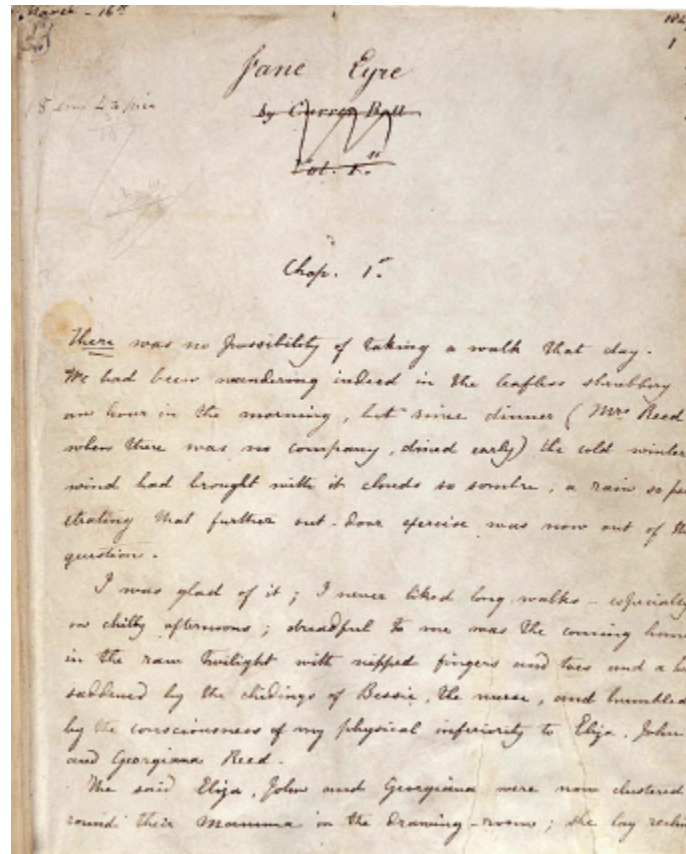 March - 16th
184
1
Jane Eyre
by Currer Bell
Vol. 1.st
Chap. 1st.
There was no possibility of taking a walk that day.
We had been wandering indeed in the leafless shrubbery
an hour in the morning, but since dinner (Mrs Reed
when there was no company, dined early) the cold winter
wind had brought with it clouds so sombre, a rain so pen
etrating that further out-door exercise was now out of the
question.
I was glad of it; I never liked long walks - especially
on chilly afternoons; dreadful to me was the coming home
in the raw twilight with nipped fingers and toes and a he
saddened by the chidings of Bessie, the nurse, and humbled
by the consciousness of my physical inferiority to Eliza, John
and Georgiana Reed.
The said Eliza, John and Georgiana were now clustered
round their Mamma in the drawing-room; she lay reclin